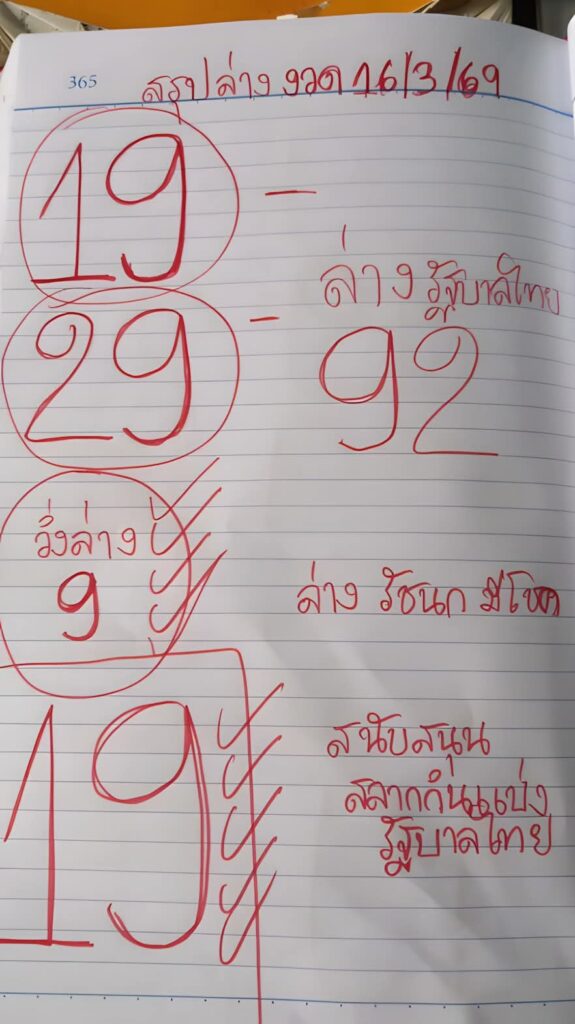 365
สรุปล่าง งวด 16/3/69
19 -
ล่าง รัฐบาลไทย
29 - 92
วิ่งล่าง
9
ล่าง รัชนก มีโชค
19
สนับสนุน
สลากกินแบ่ง
รัฐบาลไทย